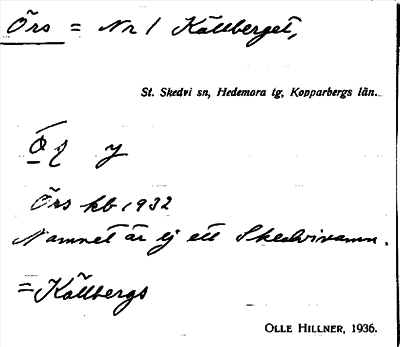 Örs = Nr 1 Källberget,
St. Skedvi sn, Hedemora tg, Kopparbergs län.
Örs kb 1932
Namnet är ej ett Skedvinamn.
= Källbergs
OLLE HILLNER, 1936.